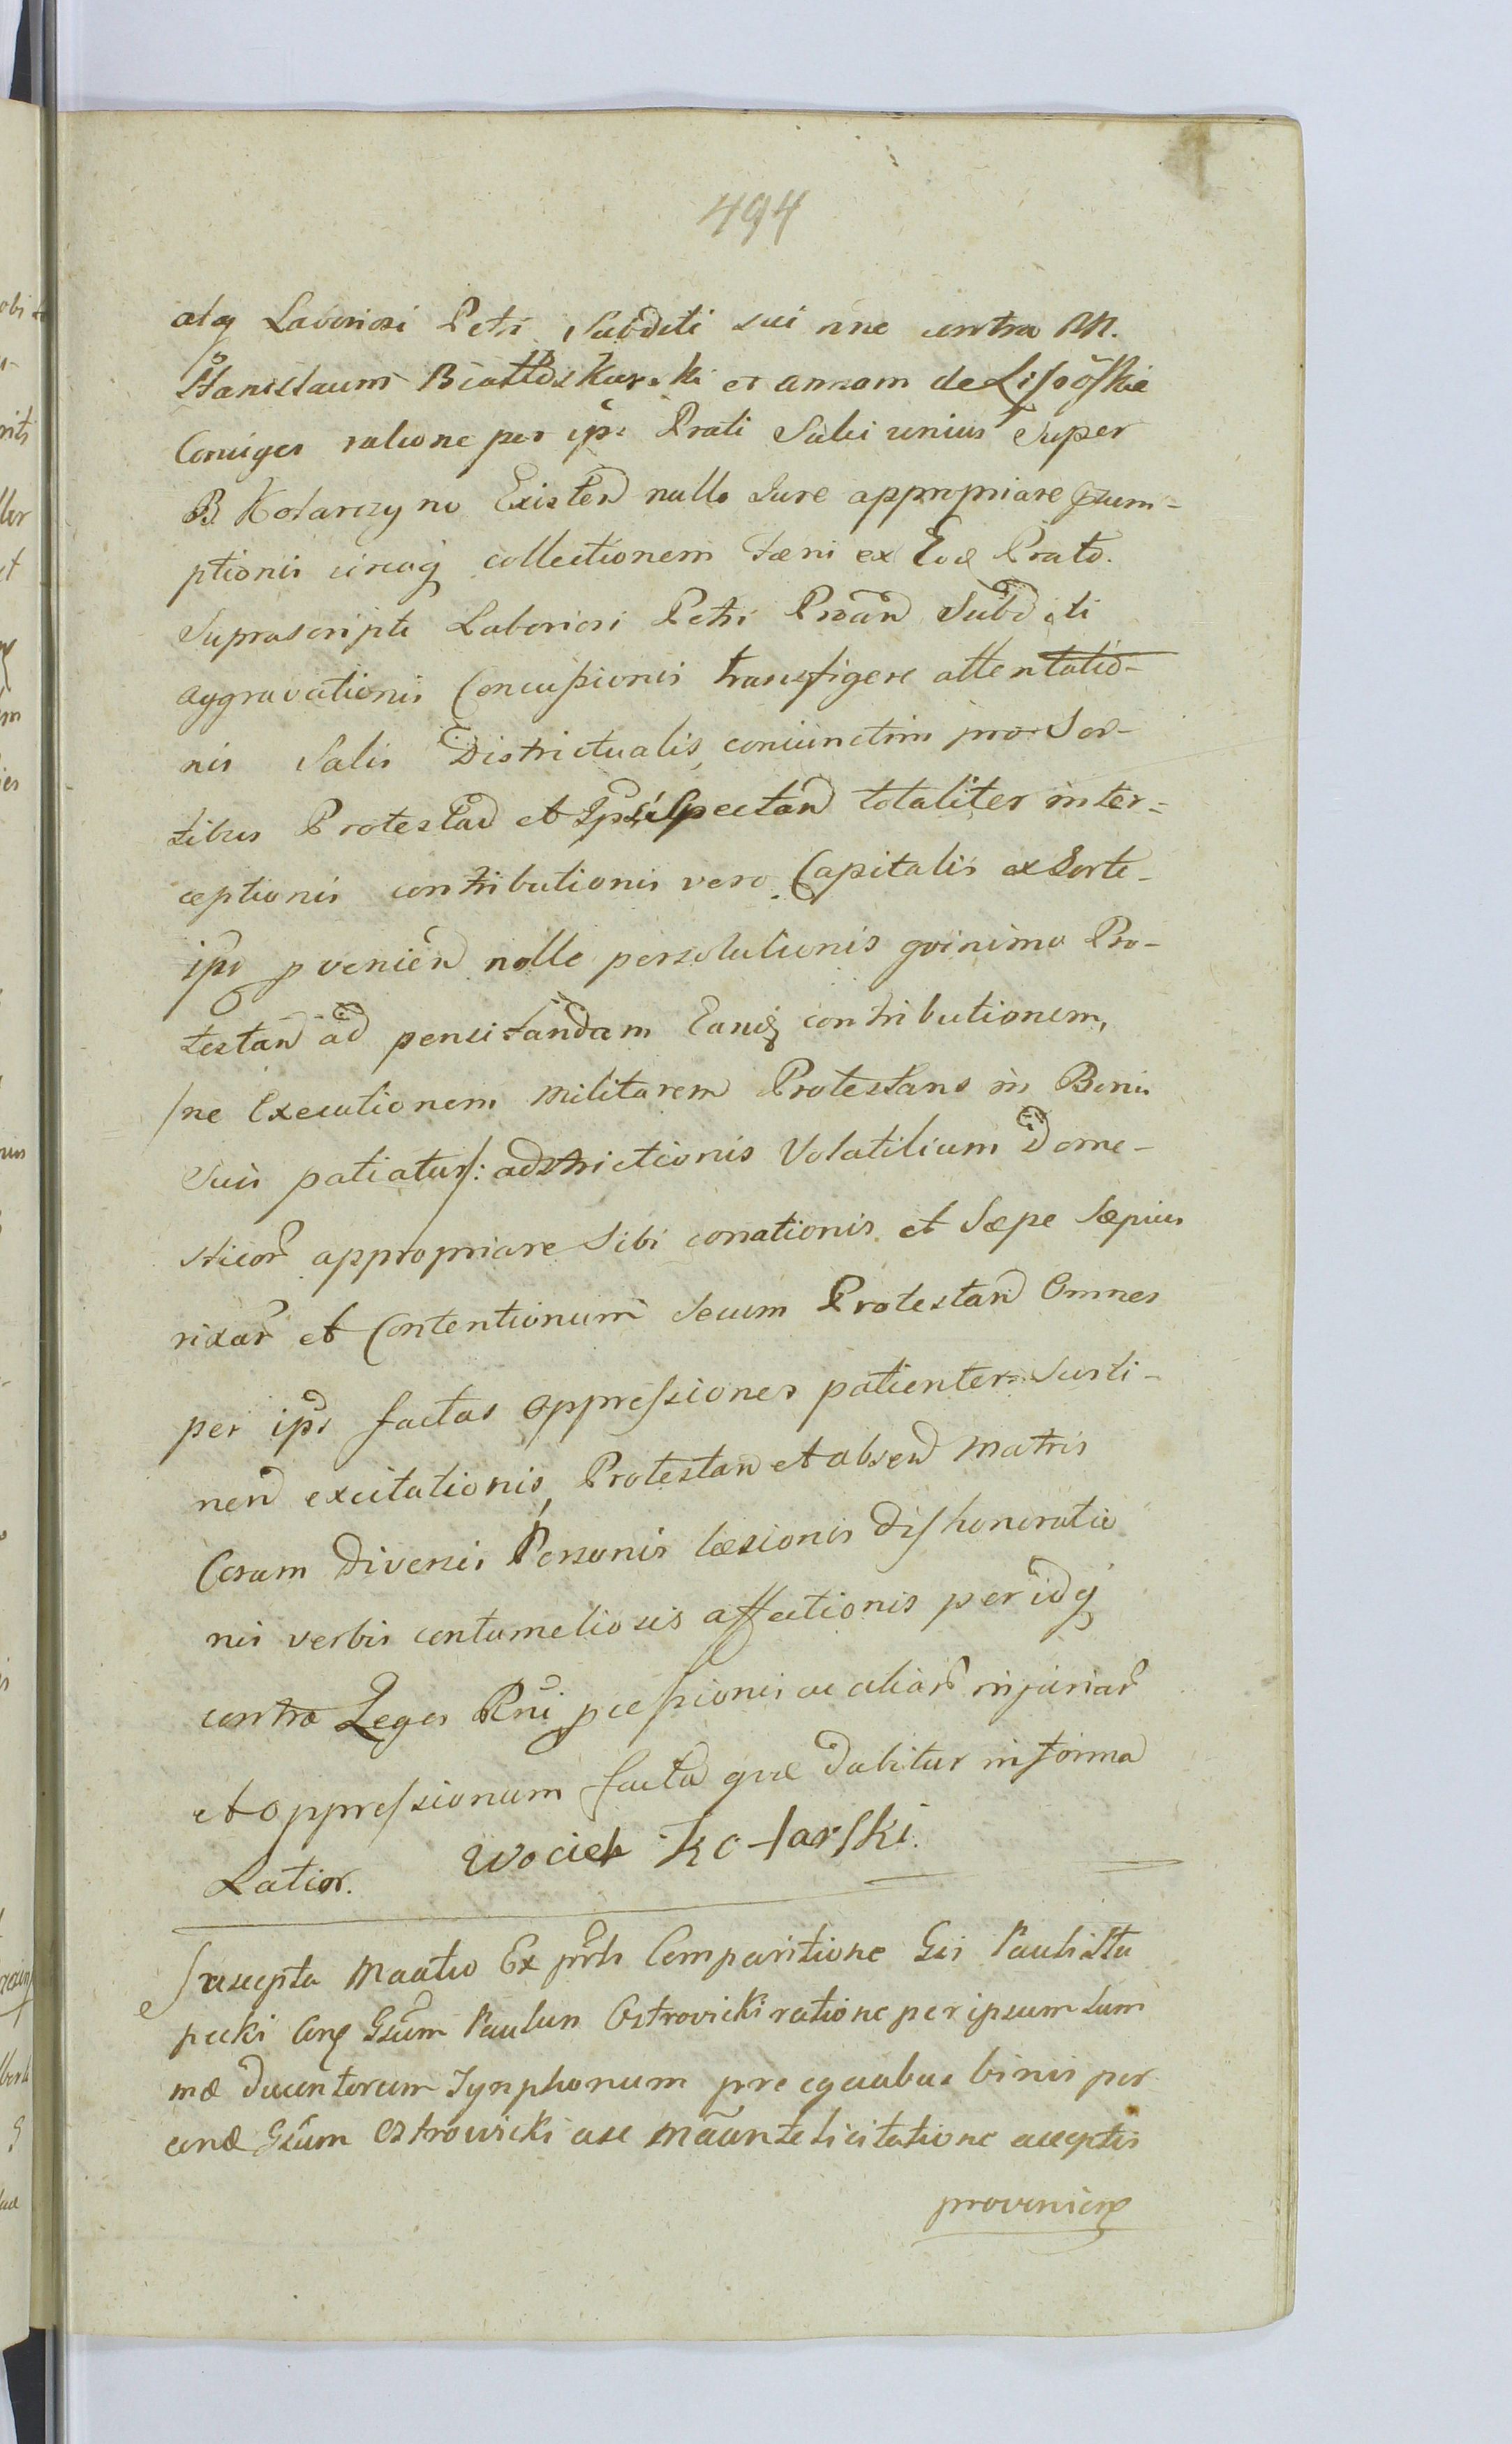 494
atq Laboriosi Petri Subditi sui nne contra M.
Stanislaum Białoskurski et annam de Lisöskie
Coniuges ratione per ips Prati Salvi unius Super
B. Kotarczyno Existen nullo Jure appropriare psum-
ptionis circaq collectionem fæni ex Eod Prato.
Suprascripti Laboriosi Petri Prôan Subditi
aggravationis Concussionis transfigere attentatio-
nis Salis Districtualis coniunctim pro Sor-
tibus Protestan et Ips Spectan totaliter inter-
ceptionis contributionis vero Capitalis ex Sorte
ips pvenien nolle persolutionis qvinimo Pro-
testan ad pensitandam Eanq contributionem,
/ne Executionem Militarem Protestans in Bonis
Suis patiatur/: adstrictionis Volatilium Dome-
sticor appropriare Sibi conationis et Sæpe Sæpius
rixar et Contentionum Secum Protestan Omnes
per ips factas oppressiones patienter Susti-
nen excitationis, Protestan et absen Matris
Coram Diversis Personis læsionis Dishonoratio
nis verbis contumeliosis affectionis per idq
contra Leges Rni pcessionis ac aliar injuriar
et oppressionum facta qvæ Dabitur in forma
Latior. Wocieh Kotarski.
Suscepta Maatio Ex prti Comparitione Gsi Pauli Stu
pecki Conq Gsum Paulum Ostrovicki ratione per ipsum Sum
mæ Ducentorum Tynphonum pre eqvabus binis per
eund Gsum Ostrowicki ase Mãante licitatione acceptis
provenien